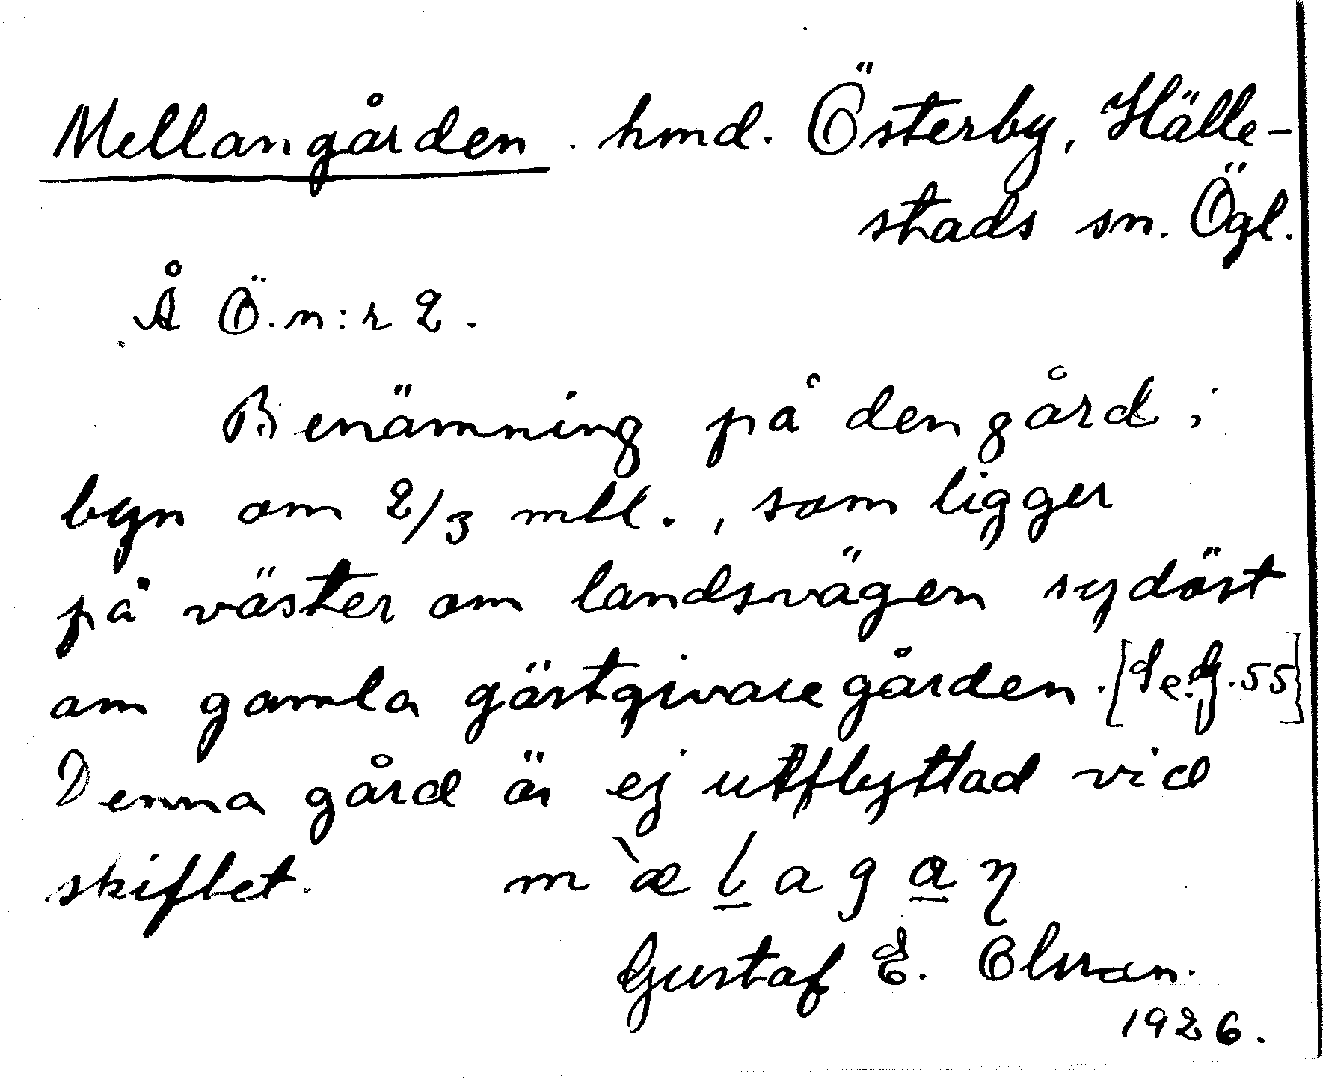 Mellangården . hmd. Österby, Hälle-
stads sn. Ögl.
Å Ö. n:r 2.
Benämning på den gård i
byn om 2/3 mtl., som ligger
på väster om landsvägen sydöst
om gamla gästgivaregården.
Denna gård är ej utflyttad vid
skiftet. m`æḻaga̲ŋ
Gustaf E. Olsson.
1926.